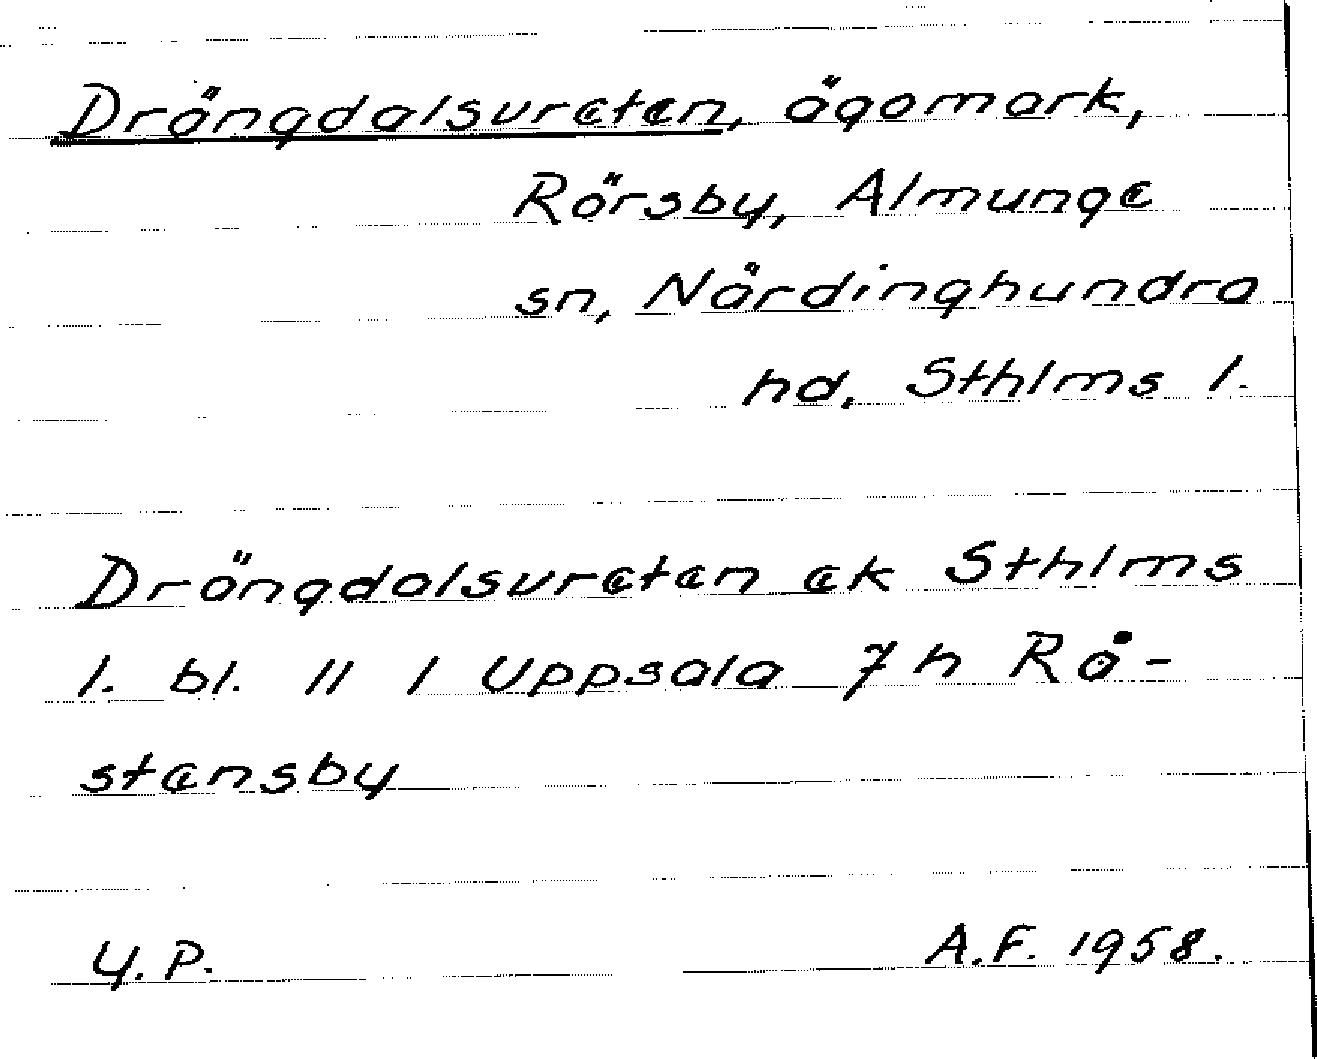 Drängdalsureten, ägomark,
Rörsby, Almunge
sn, Närdinghundra
hd, Sthlms l.
Drängdalsureten ek Sthlms
l. bl. 11 / Uppsala 7 h Rå-
stensby
Y.P. A.F. 1958.